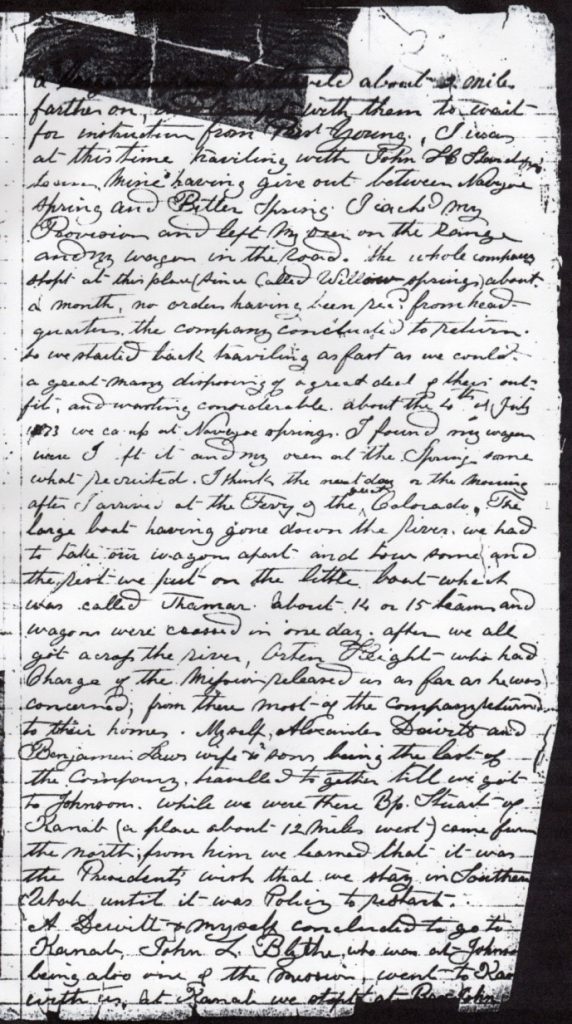 about 2 miles
farther on, with them to wait
for instruction from Prest Young. I was
at this time traviling with John H
team, mine having give out between Navijoe
spring and Bitter Spring. I cach'd my
Provision and left my oxen on the Range
and my wagon in the Road. the whole company
stopt at this place (since called Willow springs) about
a month, no orders having been rec'd from head-
quarters, the company concluded to return.
so we started back traviling as fast as we could.
a great many disposing of a great deal of their out-
fit, and wasting considerable. about the 4th of July
1873 we ca up at Navijoe springs. I found my wagon
were I ft it and my oxen at the Spring some
what recruited. I think the next day or the morning
after I arrived at the Fery of the great Colorado. The
large boat having gone down the River. we had
to take our wagons apart and tow some, and
the rest we put on the little boat which
was called Thamar. about 14 or 15 teams and
wagons were crossed in one day. after we all
got across the river, Height who had
Charge of the Mission released us as far as he was
concerned, from there most of the company returned
to their homes. Myself, Alexander Dewitt and
Benjamin Laws wife & sons being the last of
the Company, travelled together till we got
to Johnson. while we were there Bp. Stuart of
Kanab (a place about 12 miles west) came from
the north, from him we learned that it was
the President's wish that we stay in Southern
Utah until it was Policy to restart.
A Dewitt & myself concluded to go to
Kanab, John L. Blythe, who was at Johnson
being also one of the mission went to Kan
with us, at Kanab we stopt at